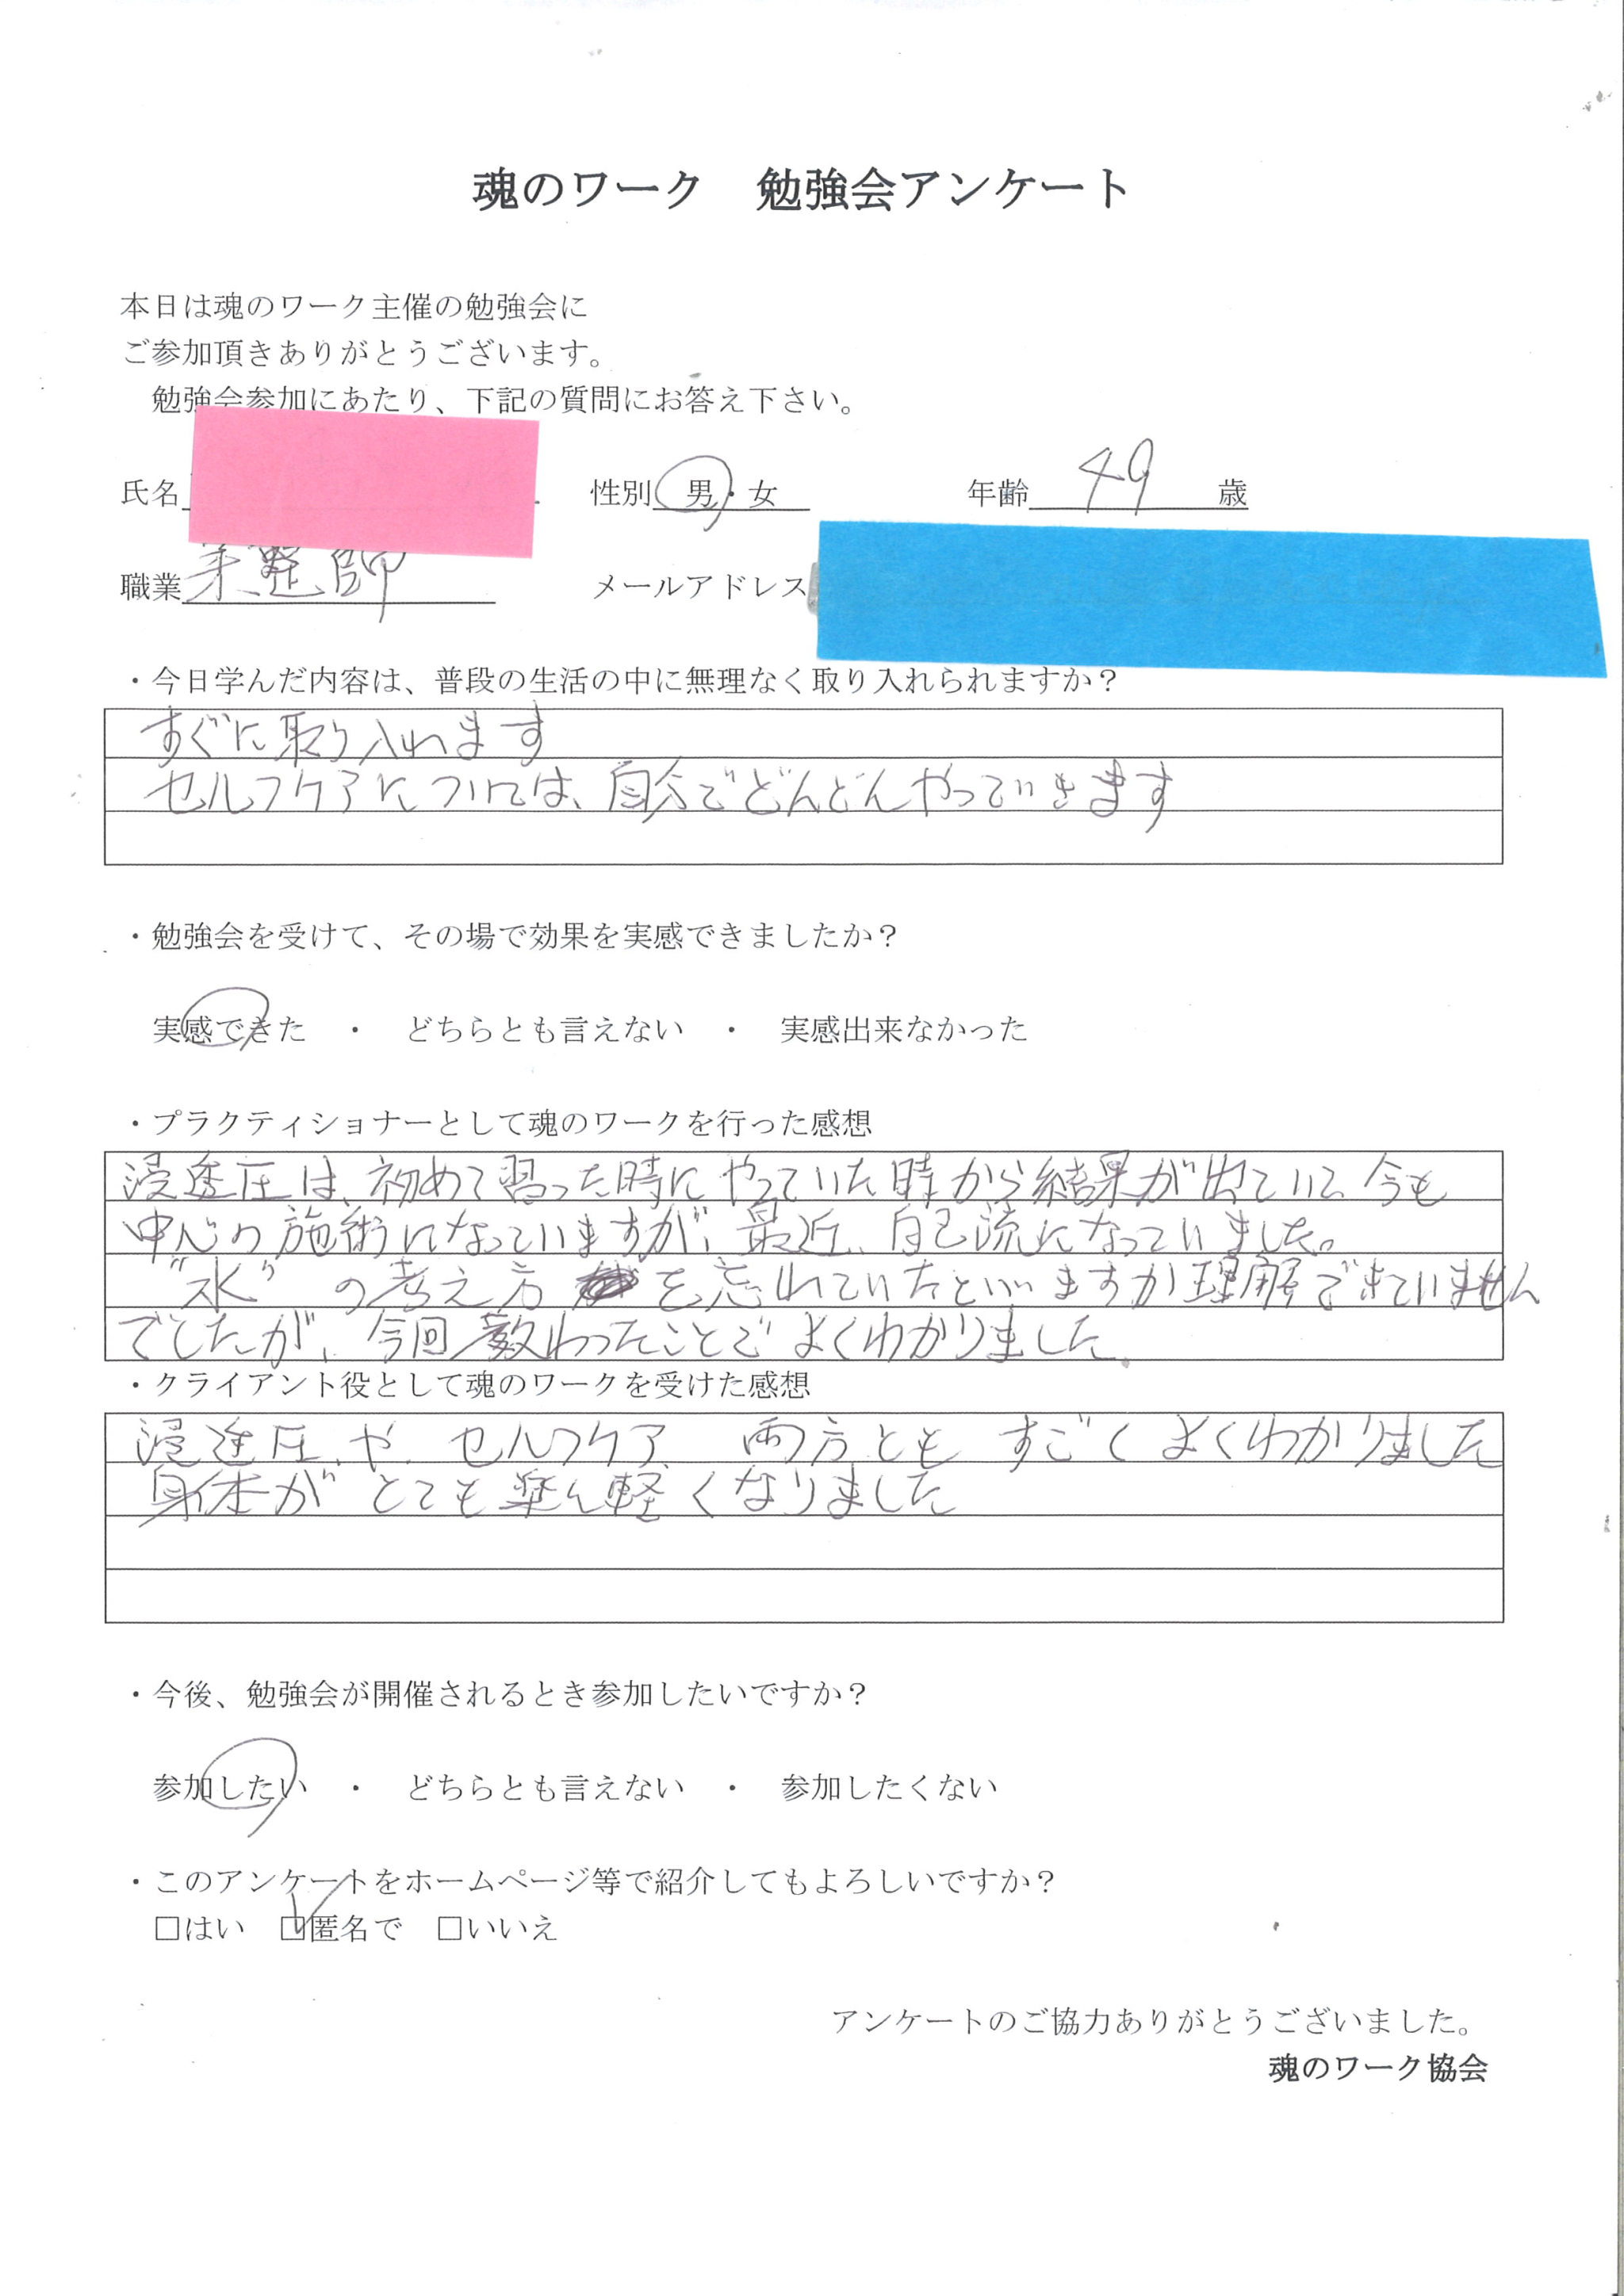 魂のワーク 勉強会アンケート
本日は魂のワーク主催の勉強会に
ご参加頂きありがとうございます。
勉強会参加にあたり、下記の質問にお答え下さい。
氏名 性別 男・女 年齢 49 歳
職業 柔整師 メールアドレス
・今日学んだ内容は、普段の生活の中に無理なく取り入れられますか？
すぐに取り入れます
セルフケアについては、自分でどんどんやっていきます
・勉強会を受けて、その場で効果を実感できましたか？
実感できた ・ どちらとも言えない ・ 実感出来なかった
・プラクティショナーとして魂のワークを行った感想
浸透圧は、初めて習った時にやっていた時から結果が出ていて、今も
中心の施術になっていますが、最近、自己流になっていました。
"水"の考え方を忘れていたといいますか理解できていません
でしたが、今回教わったことでよくわかりました。
・クライアント役として魂のワークを受けた感想
浸透圧や、セルフケア、両方とも すごくよくわかりました
身体がとても楽に軽くなりました
・今後、勉強会が開催されるとき参加したいですか？
参加したい ・ どちらとも言えない ・ 参加したくない
・このアンケートをホームページ等で紹介してもよろしいですか？
□はい □匿名で □いいえ
アンケートのご協力ありがとうございました。
魂のワーク協会